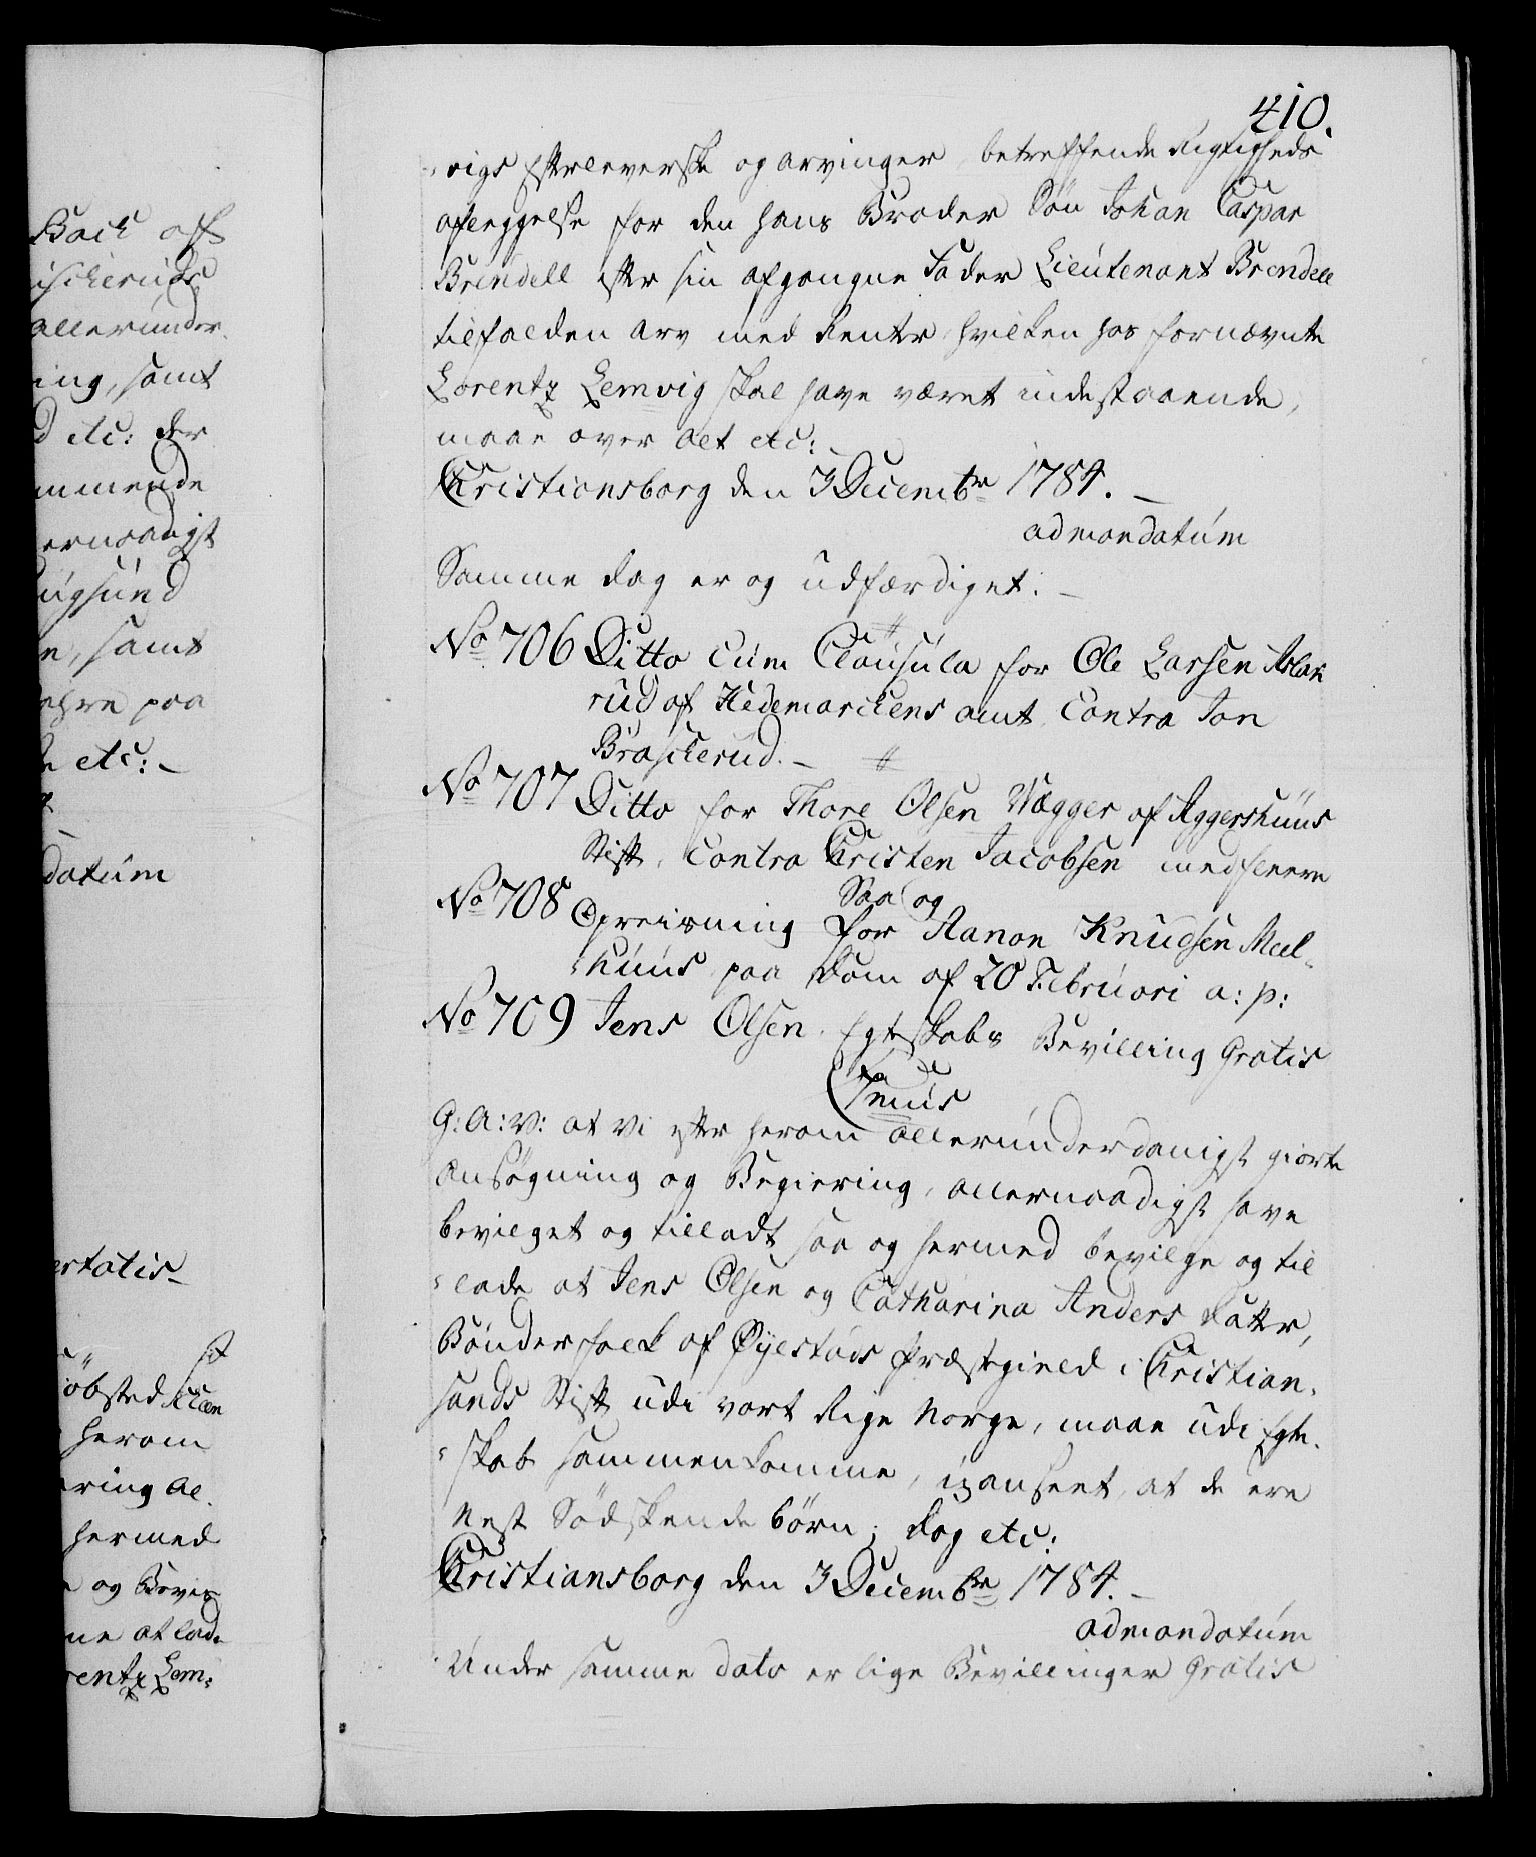 Bach aff
allerunder
ing, samt
d etc: der
mmende
ernaadigst
ugsund
n, samt
paa
etc: _
datum
ertatis_
herom
ring al.
hermed
og Bevis
ne at lade
rentz Lem:
410.
„vigs Efterleverske og arvinger, betreffende Rigtigheds
aflæggelse for den hans Broder Søn Johan Caspar
Brendell efter sin afgangne Fader Lieutenant Brendell
tilfalden Arv med Renter, hvilken hos fornævnte
Lorentz Lemvig skal have været indestaaende,
maae over alt etc:
Christiansborg den 3 Decembr 1784. _
ad mandatum
Samme dag er og udfærdiget: _
No 706 Ditto cum Clausula for Ole Larsen Aslak
rud af Hedemarckens amt, Contra Jon
Braskerud. _
No 707 Ditto for Thore Olsen Vægger af Aggershuus
Stift, Contra Christen Jacobsen med fleere
Saa og
No 708 Opreisning for Aanon Knudsen Meel„
„huus paa Dom af 20 Februari a: p:
No 709 Jens Olsen Egteskabs Bevilling Gratis
G: A: V: at Vi efter herom allerunderdanigst giorte
Ansøgning og Begiering, allernaadigst have
bevilget og tilladt, saa og hermed bevilge og til
„lade at Jens Olsen og Catharina Anders datter,
Bønderfolk af Øyestads Præstegield i Christian„
sands Stift udi vort Rige Norge, maae udi Egte„
„skab sammenkomme, uanseet, at de ere
Nest Sødskendebørn; dog etc:
Christiansborg den 3 Decembr 1784. _
ad mandatum
Under samme dato er lige Bevillinger Gratis